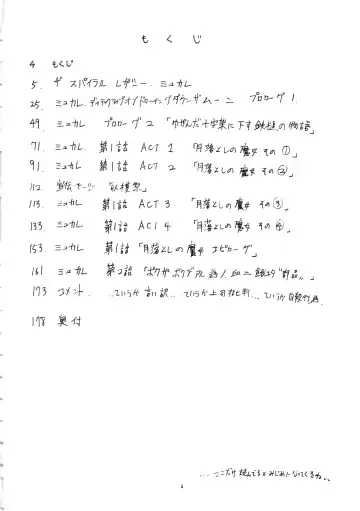 もくじ
4 もくじ
5. ザ スパイラル レザニー. ミュカレ
25. ミュカレ. ディテクティブオブドローイングダウンザムーン プロローグ 1.
49. ミュカレ プロローグ 2 「ゆがんだ十字架に下す鉄槌の物語」
71. ミュカレ. 第1話 ACT 1 「月落としの魔女 その①」
91. ミュカレ 第1話 ACT 2 「月落としの魔女 その②」
112. 「収穫祭」
113. ミュカレ 第1話 ACT 3 「月落としの魔女 その③」
133. ミュカレ 第1話 ACT 4 「月落としの魔女 その④」
153. ミュカレ 第1話「月落としの魔女 エピローグ」
161 ミュカレ 第2話「ボクがボクで
173 コメント. ...ていうか言い訳... ていうか上司批判... ていうか自殺行為.
178 奥付
...ここだけ読んでるとみじめになってくるわ...